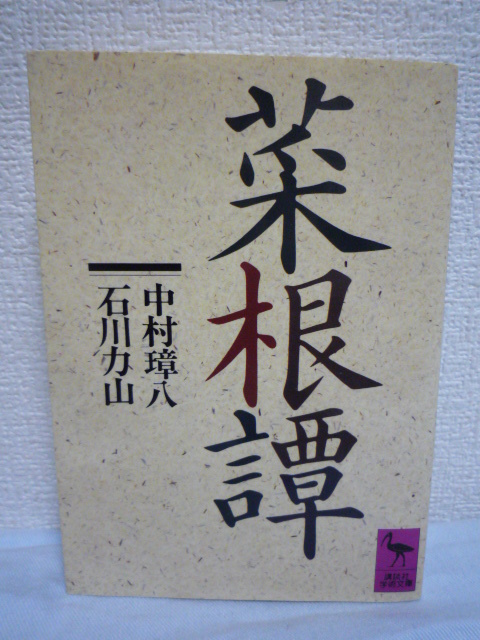 菜根譚
中村璋八
石川力山
講談社
学術文庫